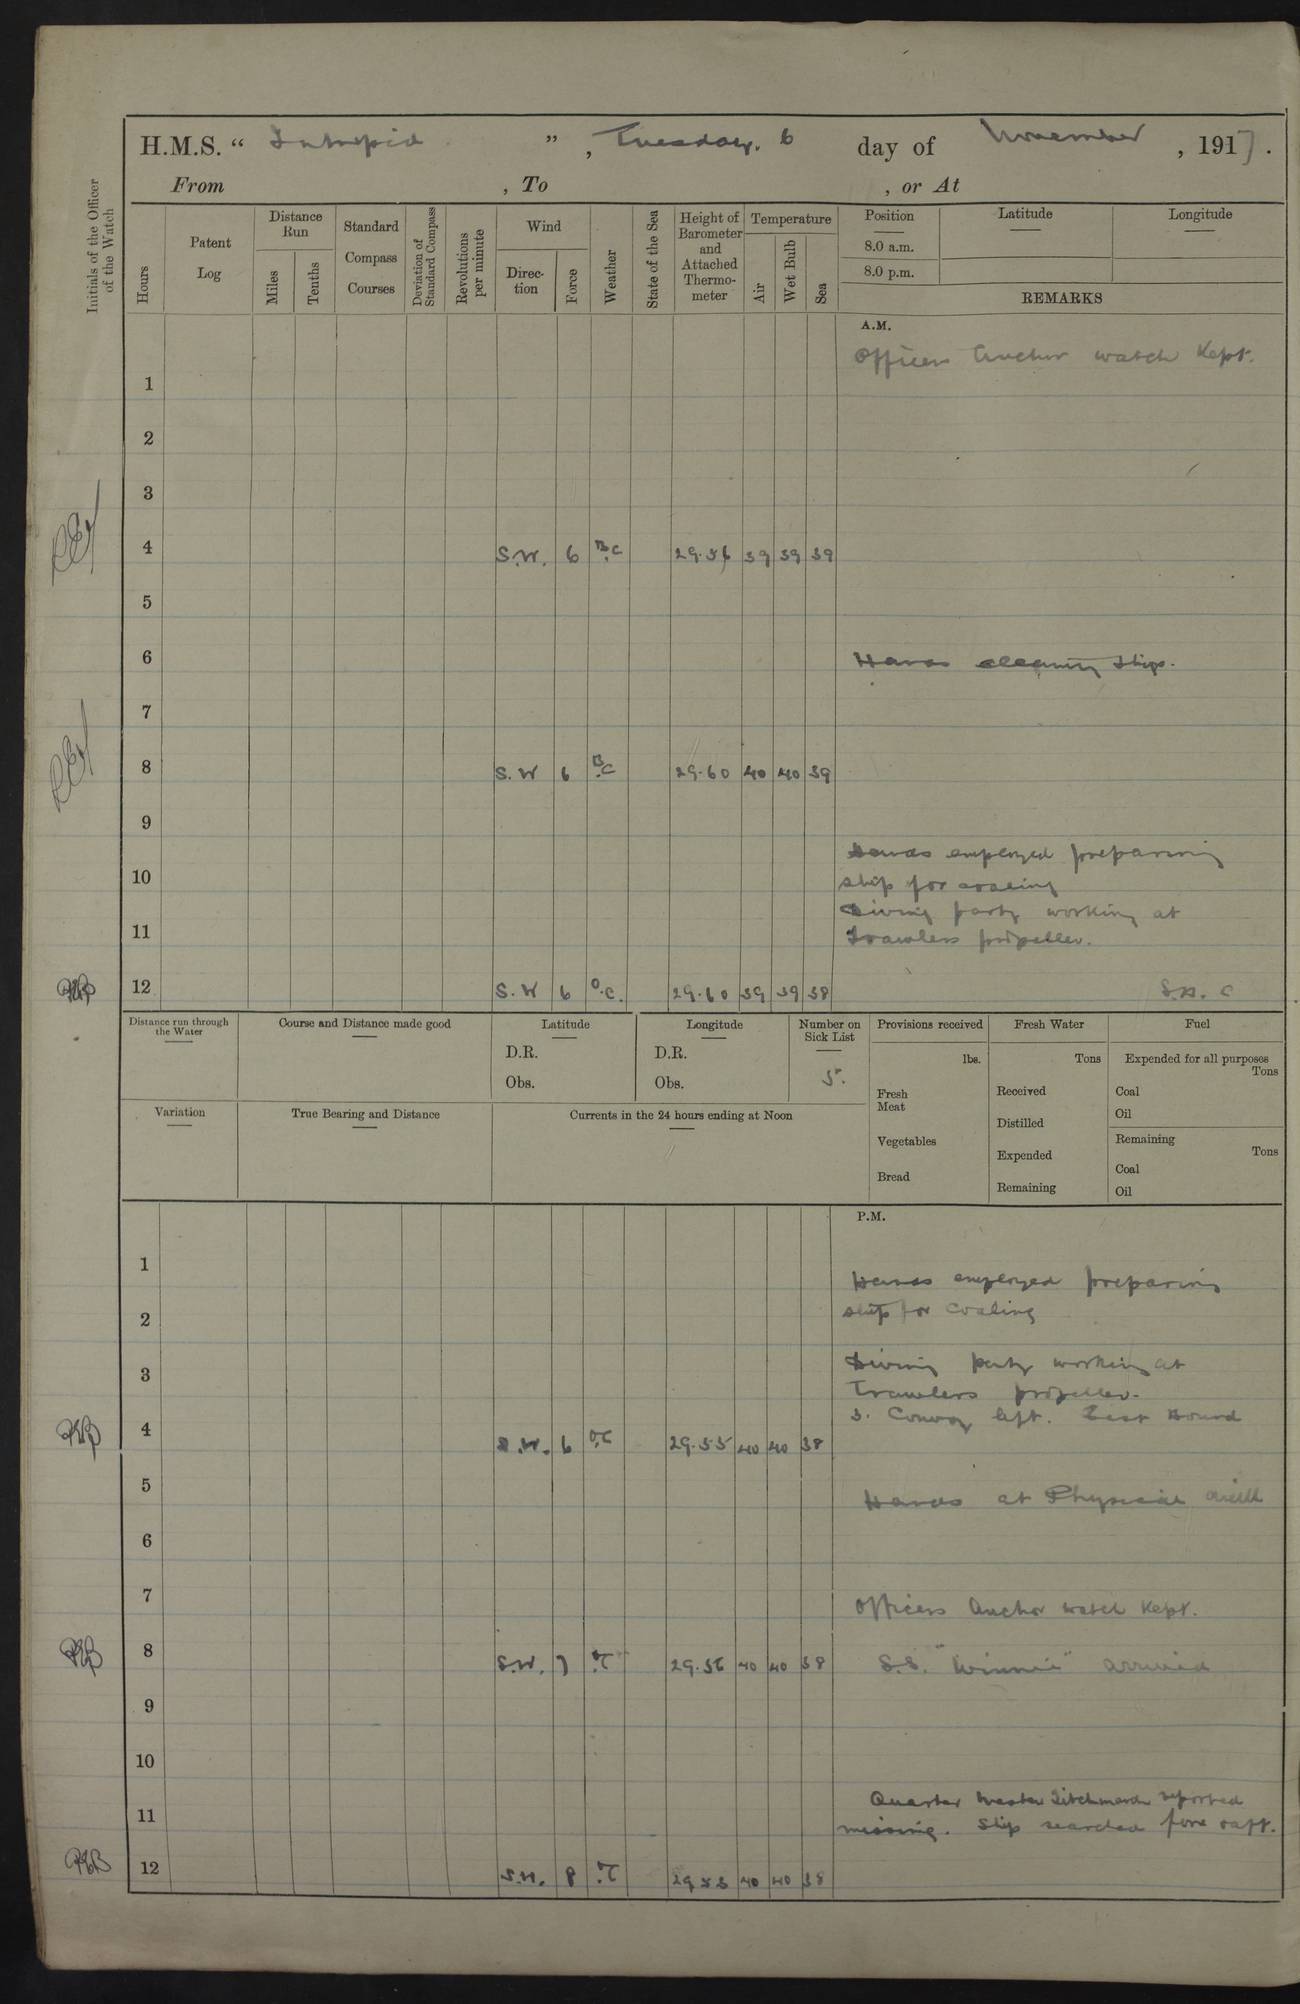 H.M.S. “ Intrepid ” , Tuesday. 6 day of November , 1917 .
From , To , or At
Initials of the Officer of the Watch
Hours
Patent Log
Distance Run
Miles
Tenths
Standard Compass Courses
Deviation of Standard Compass
Revolutions per minute
Wind
Direc-tion
Force
Weather
State of the Sea
Height of Barometer and Attached Thermo-meter
Temperature
Air
Wet Bulb
Sea
Position
8.0 a.m.
8.0 p.m.
Latitude
Longitude
REMARKS
A.M.
Officers Anchor watch Kept.
1
2
3
4 S.W. 6 B.C 29.56 39 39 39
5
6 Hands cleaning Ship.
7
8 S.W 6 B.C 29.60 40 40 39
9
Hands employed preparing
10 ship for coaling
Diving party working at
11 Trawlers propeller.
12 S.W 6 O.C. 29.60 39 39 38
Distance run through the Water
Course and Distance made good
Latitude
D.R.
Obs.
Longitude
D.R.
Obs.
Number on Sick List
5.
Provisions received
lbs.
Fresh Meat
Vegetables
Bread
Fresh Water
Tons
Received
Distilled
Expended
Remaining
Fuel
Expended for all purposes
Tons
Coal
Oil
Remaining
Tons
Coal
Oil
Variation
True Bearing and Distance
Currents in the 24 hours ending at Noon
P.M.
1
Hands employed preparing
2 ship for Coaling
3 Diving party working at
Trawlers propeller.
3. Convoy left. East Bound
4 S.W. 6 O.C 29.55 40 40 38
5 Hands at Physical drill
6
7 Officers Anchor watch Kept.
8 S.W. 7 29.56 40 40 38 S.S. "Winnie" arrived
9
10
Quarter Master Titchmarsh reported
11 missing. Ship searched fore & aft.
12 S.W. 8 29.53 40 40 38